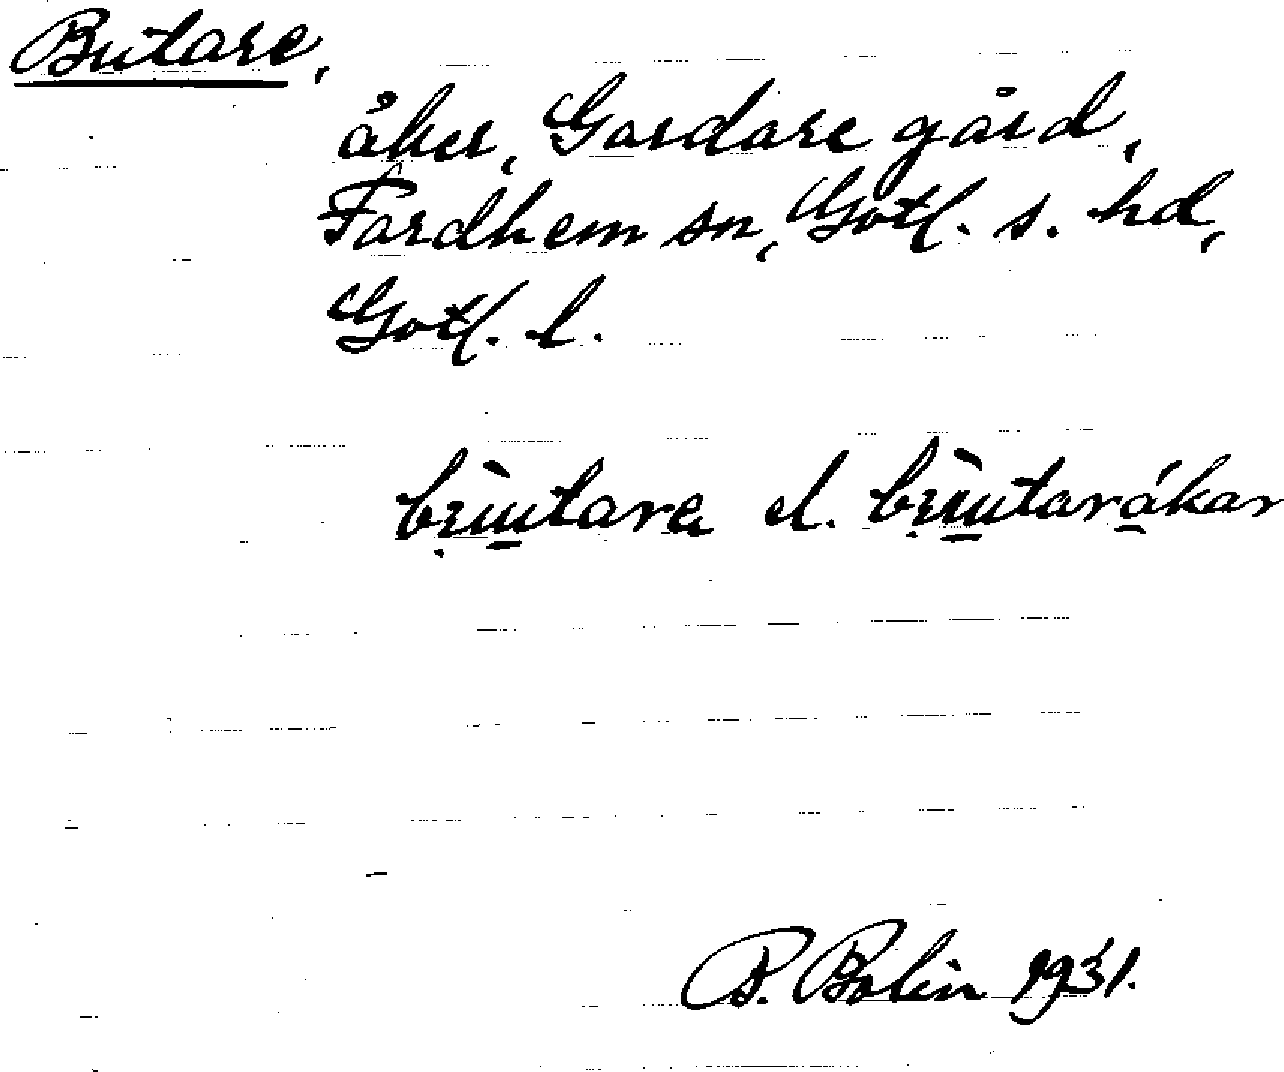 Butare,
åker, Gardare gård,
Fardhem sn, Gotl. s. hd,
Gotl. l.
el.
P. Bolin 1931.